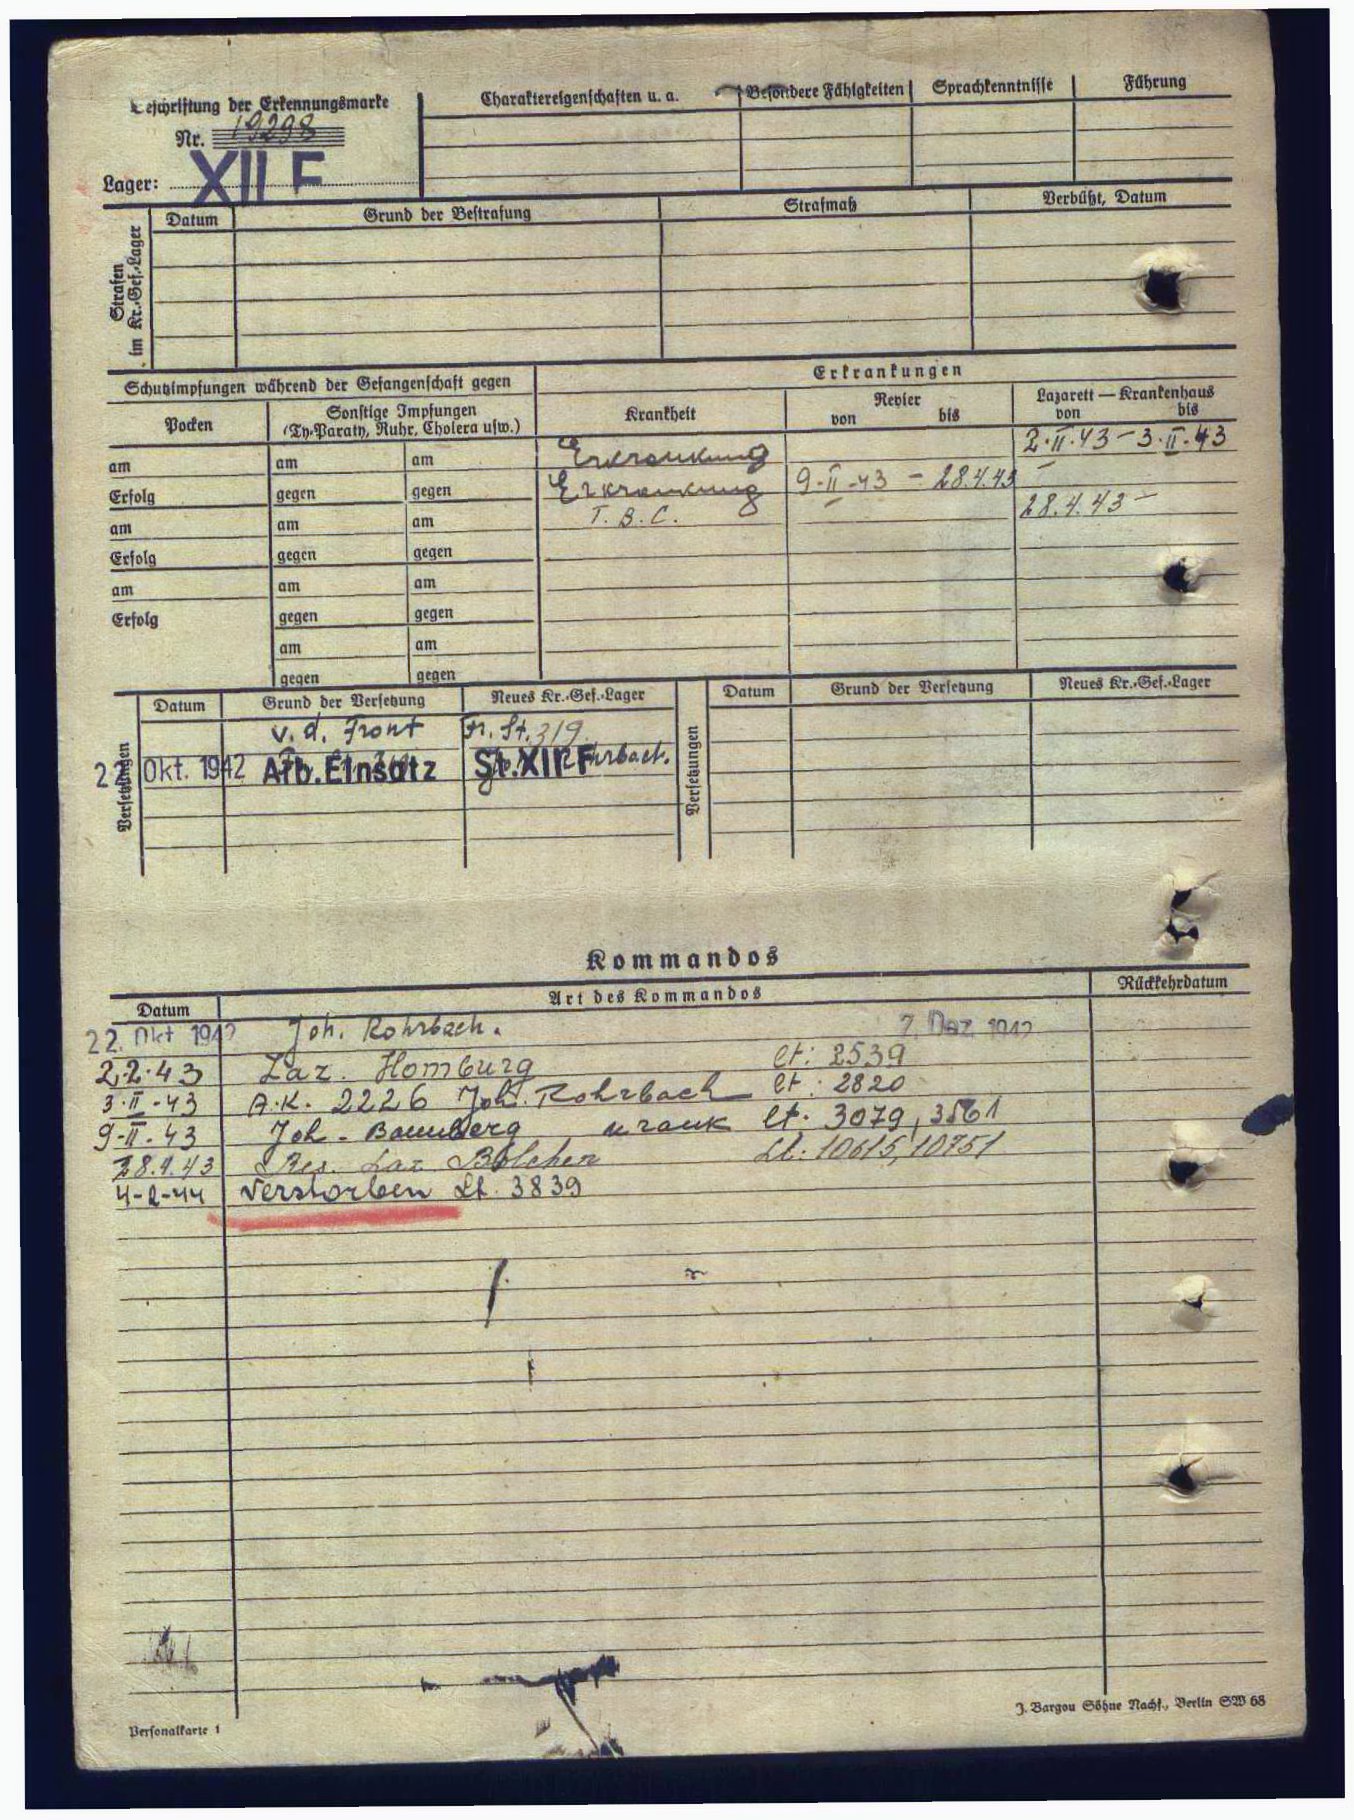 Beschriftung der Erkennungsmarke
Nr. 19298
Lager: XII F
Charaktereigenschaften u. a.
Besondere Fähigkeiten
Sprachkenntnisse
Führung
Strafen im Kr.-Gef.-Lager
Datum
Grund der Bestrafung
Strafmaß
Verbüßt, Datum
Schutzimpfungen während der Gefangenschaft gegen
Erkrankungen
Pocken
Sonstige Impfungen
(Ty-Paraty, Ruhr, Cholera usw.)
Krankheit
Revier
von bis
Lazarett — Krankenhaus
von bis
am am am Erkrankung 2.II.43 – 3.II.43
Erfolg gegen gegen Erkrankung 9-II-43 – 28.4.43
am am am T.B.C. 28.4.43 –
Erfolg gegen gegen
am am am
Erfolg gegen gegen
am am
gegen gegen
Versetzungen
Datum
Grund der Versetzung
Neues Kr.-Gef.-Lager
v. d. Front Fr. St. 319.
22. Okt. 1942 Arb.Einsatz St.XII F
Versetzungen
Datum
Grund der Versetzung
Neues Kr.-Gef.-Lager
Kommandos
Datum
Art des Kommandos
Rückkehrdatum
22. Okt 1942 Joh. Rohrbach. 7. Dez 1942
2.2.43 Laz. Homburg lt: 2539
3.II-43 A.K. 2226 Joh. Rohrbach lt: 2820
9-II-43 Joh. - Baumberg krank lt. 3079, 3561
28.4.43 Res. Laz Bolchen Lt: 10615, 10751
4-2-44 Verstorben Lt. 3839
Personalkarte 1
J. Bargou Söhne Nachf., Berlin SW 68